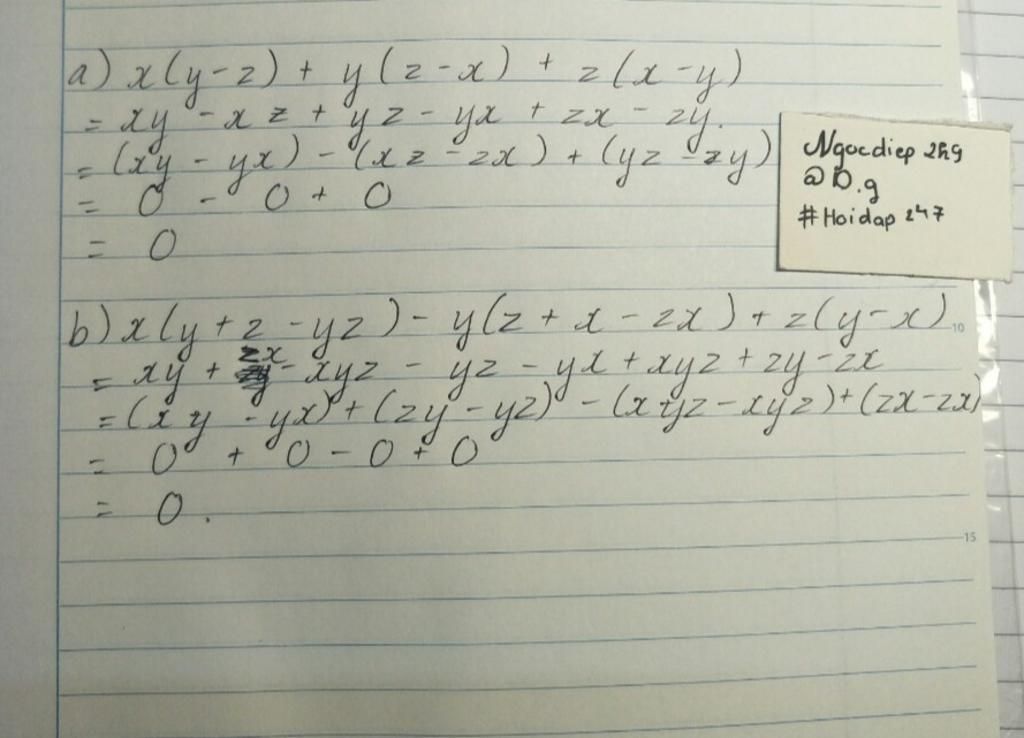 a) x(y-z) + y(z-x) + z(x-y)
= xy - xz + yz - yx + zx - zy.
= (xy - yx) - (xz - zx) + (yz - zy)
= 0 - 0 + 0
= 0
Ngocdiep 2k9
@D.g
#Hoidap 247
b) x(y+z-yz) - y(z+x-zx) + z(y-x)
= xy + zx - xyz - yz - yx + xyz + zy - zx
= (xy - yx) + (zy - yz) - (xyz - xyz) + (zx - zx)
= 0 + 0 - 0 + 0
= 0.
10
15